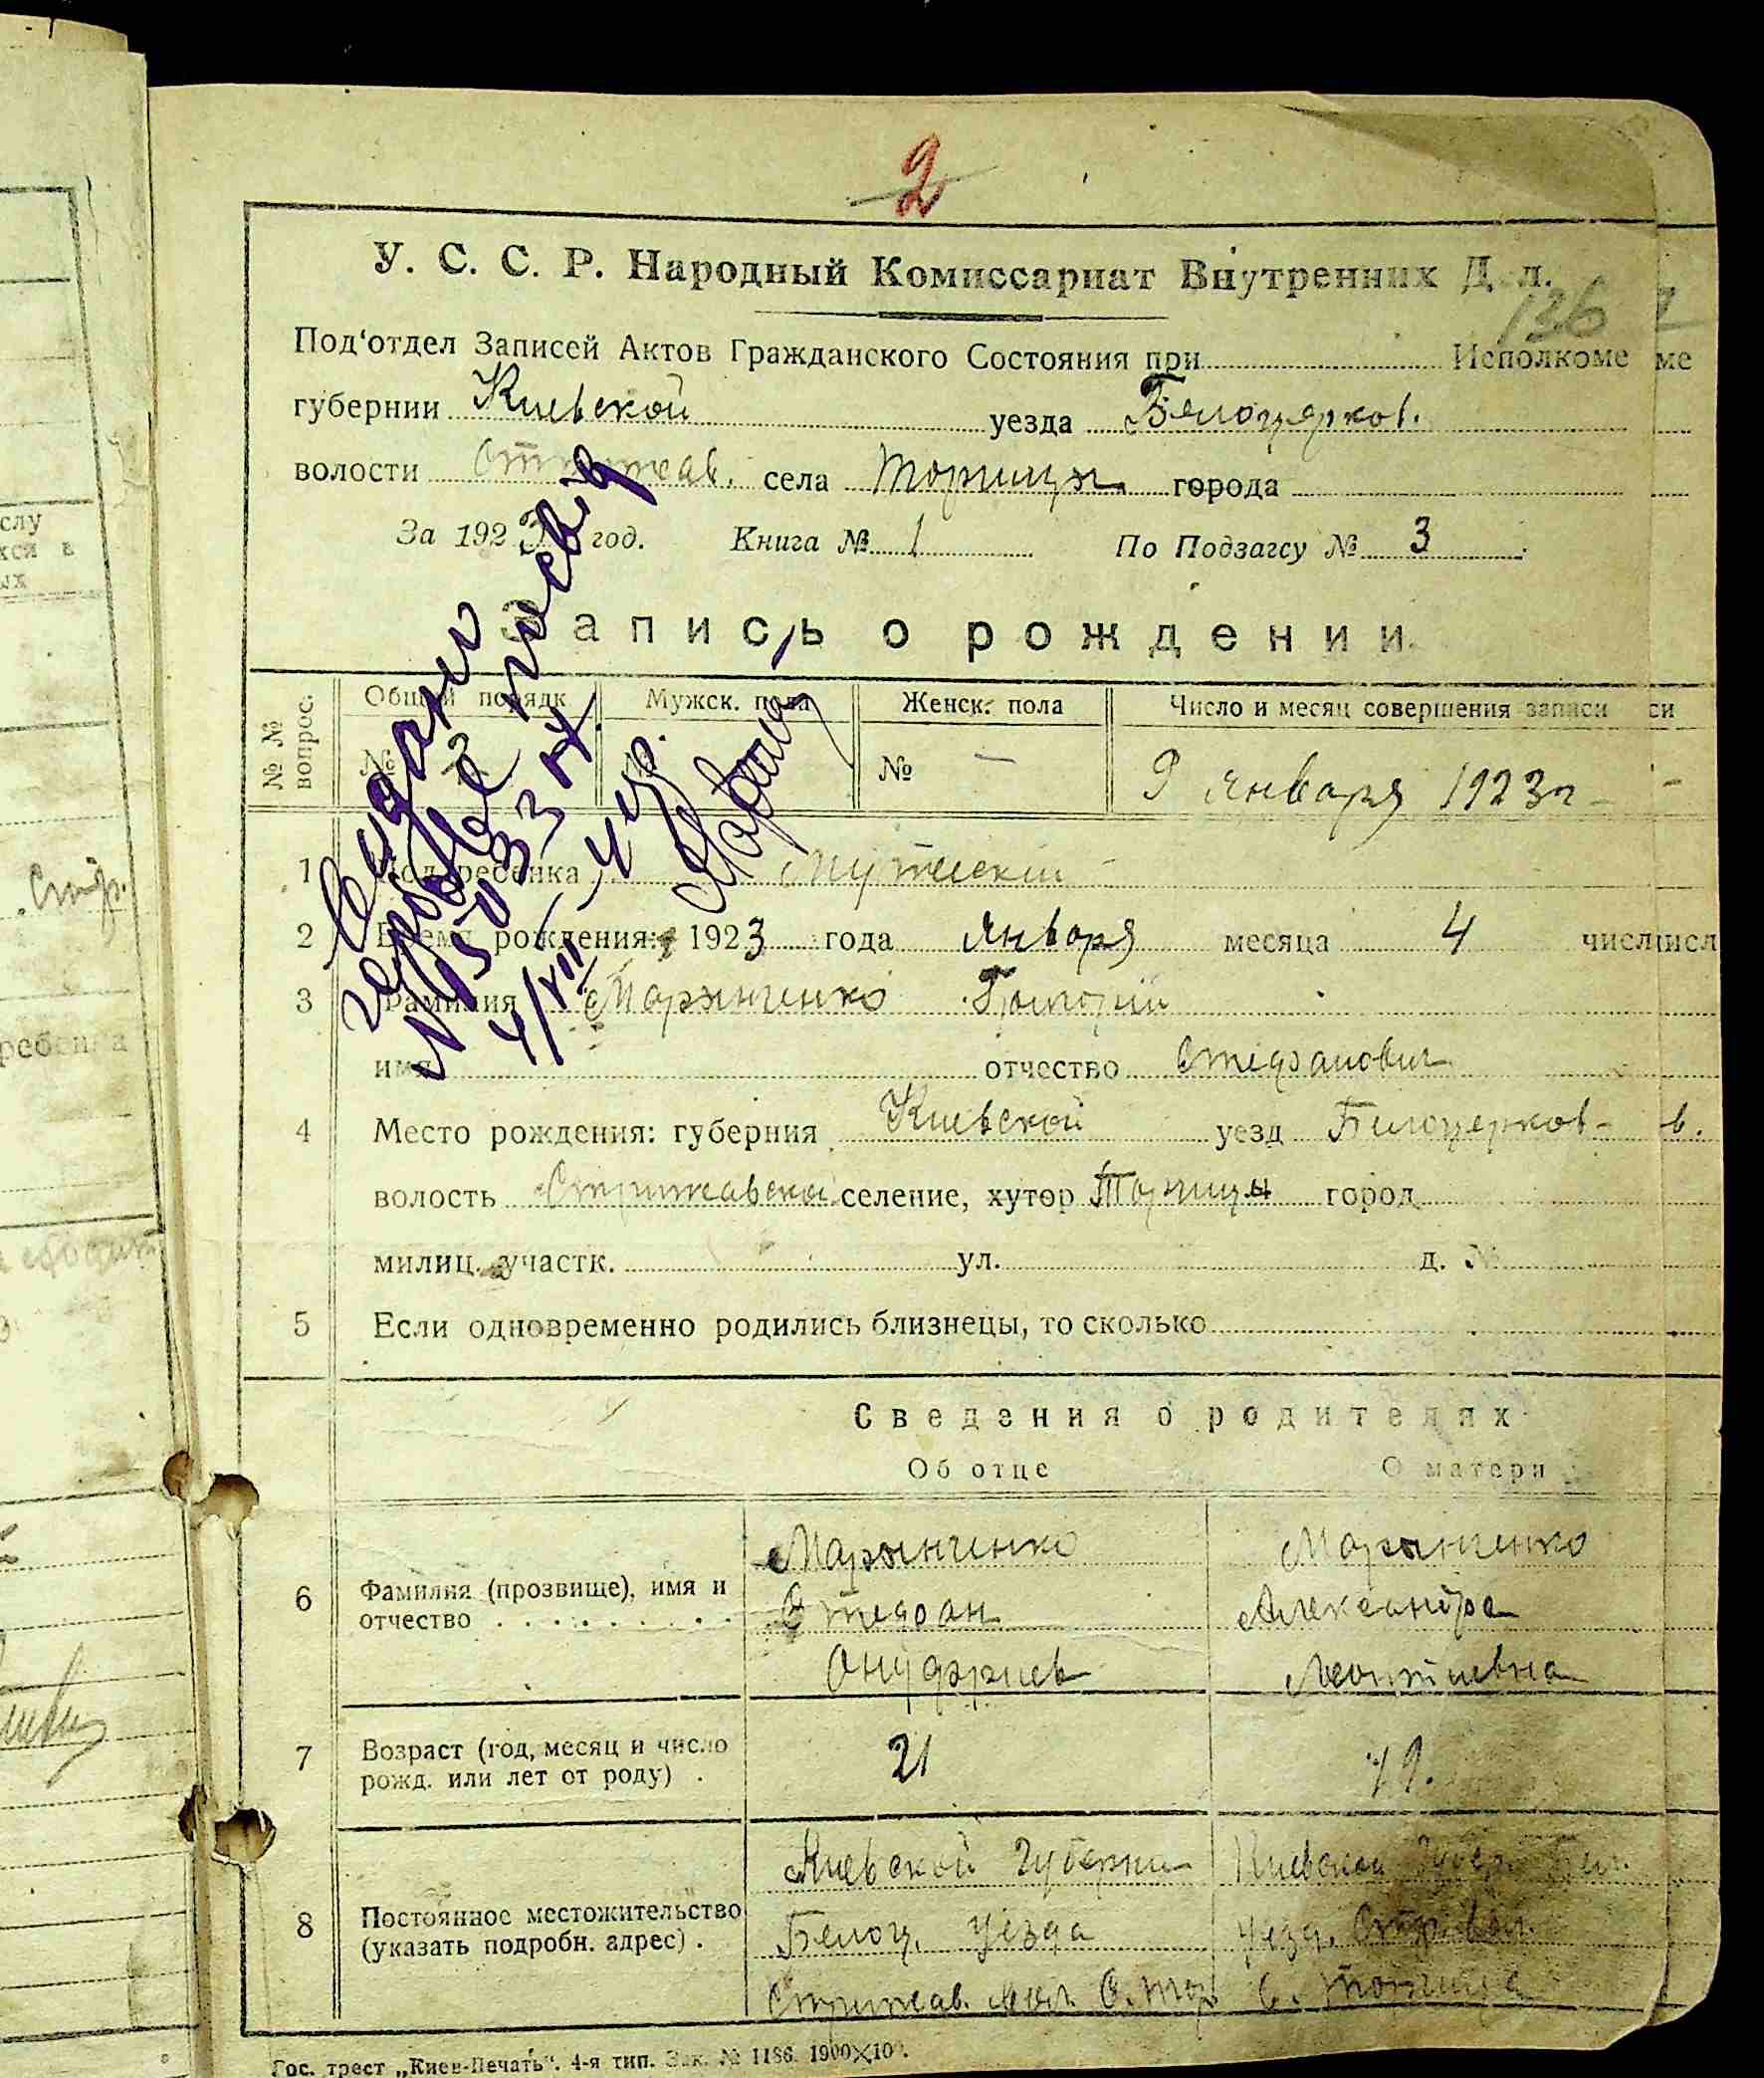 2
У. С. С. Р. Народный Комиссариат Внутренних Д л.
136
Под'отдел Записей Актов Гражданского Состояния при Исполкоме ме
губернии Киевской уезда Белоцерков.
волости села Торчицы города
За 1923 год. Книга № 1 По Подзагсу № 3
Запись о рождении.
№ № вопрос.
Общий порядк Мужск. пола Женск. пола Число и месяц совершения записи си
№ 3 № № — 9 января 1923 г
1 Пол ребенка Мужескій
2 Время рождения: 1923 года января месяца 4 числ исл
3 Фамилия Марынченко Григорій
имя отчество Стефанович
4 Место рождения: губерния Киевской уезд Белоцерков- в.
волость Стрижавской селение, хутор Торчицы город
милиц. участк. ул. д. №
5 Если одновременно родились близнецы, то сколько
Сведения о родителях
Об отце О матери
6 Фамилия (прозвище), имя и отчество
Марынченко
Стефан
Онуфриев
Марынченко
Александра
Леонтиевна
7 Возраст (год, месяц и число рожд. или лет от роду) .
21
19.
8 Постоянное местожительство (указать подробн. адрес) .
Киевской Губернии
Белоц. Уезда
Стрижав. вол. С. Тор
Киевской Губер. Бел.
Уезд. Стр. вол.
С. Торчица
Гос. трест „Киев-Печать". 4-я тип. Зак. № 1186. 1900×10 .
слу
хся в
ых
Стр.
ребенка